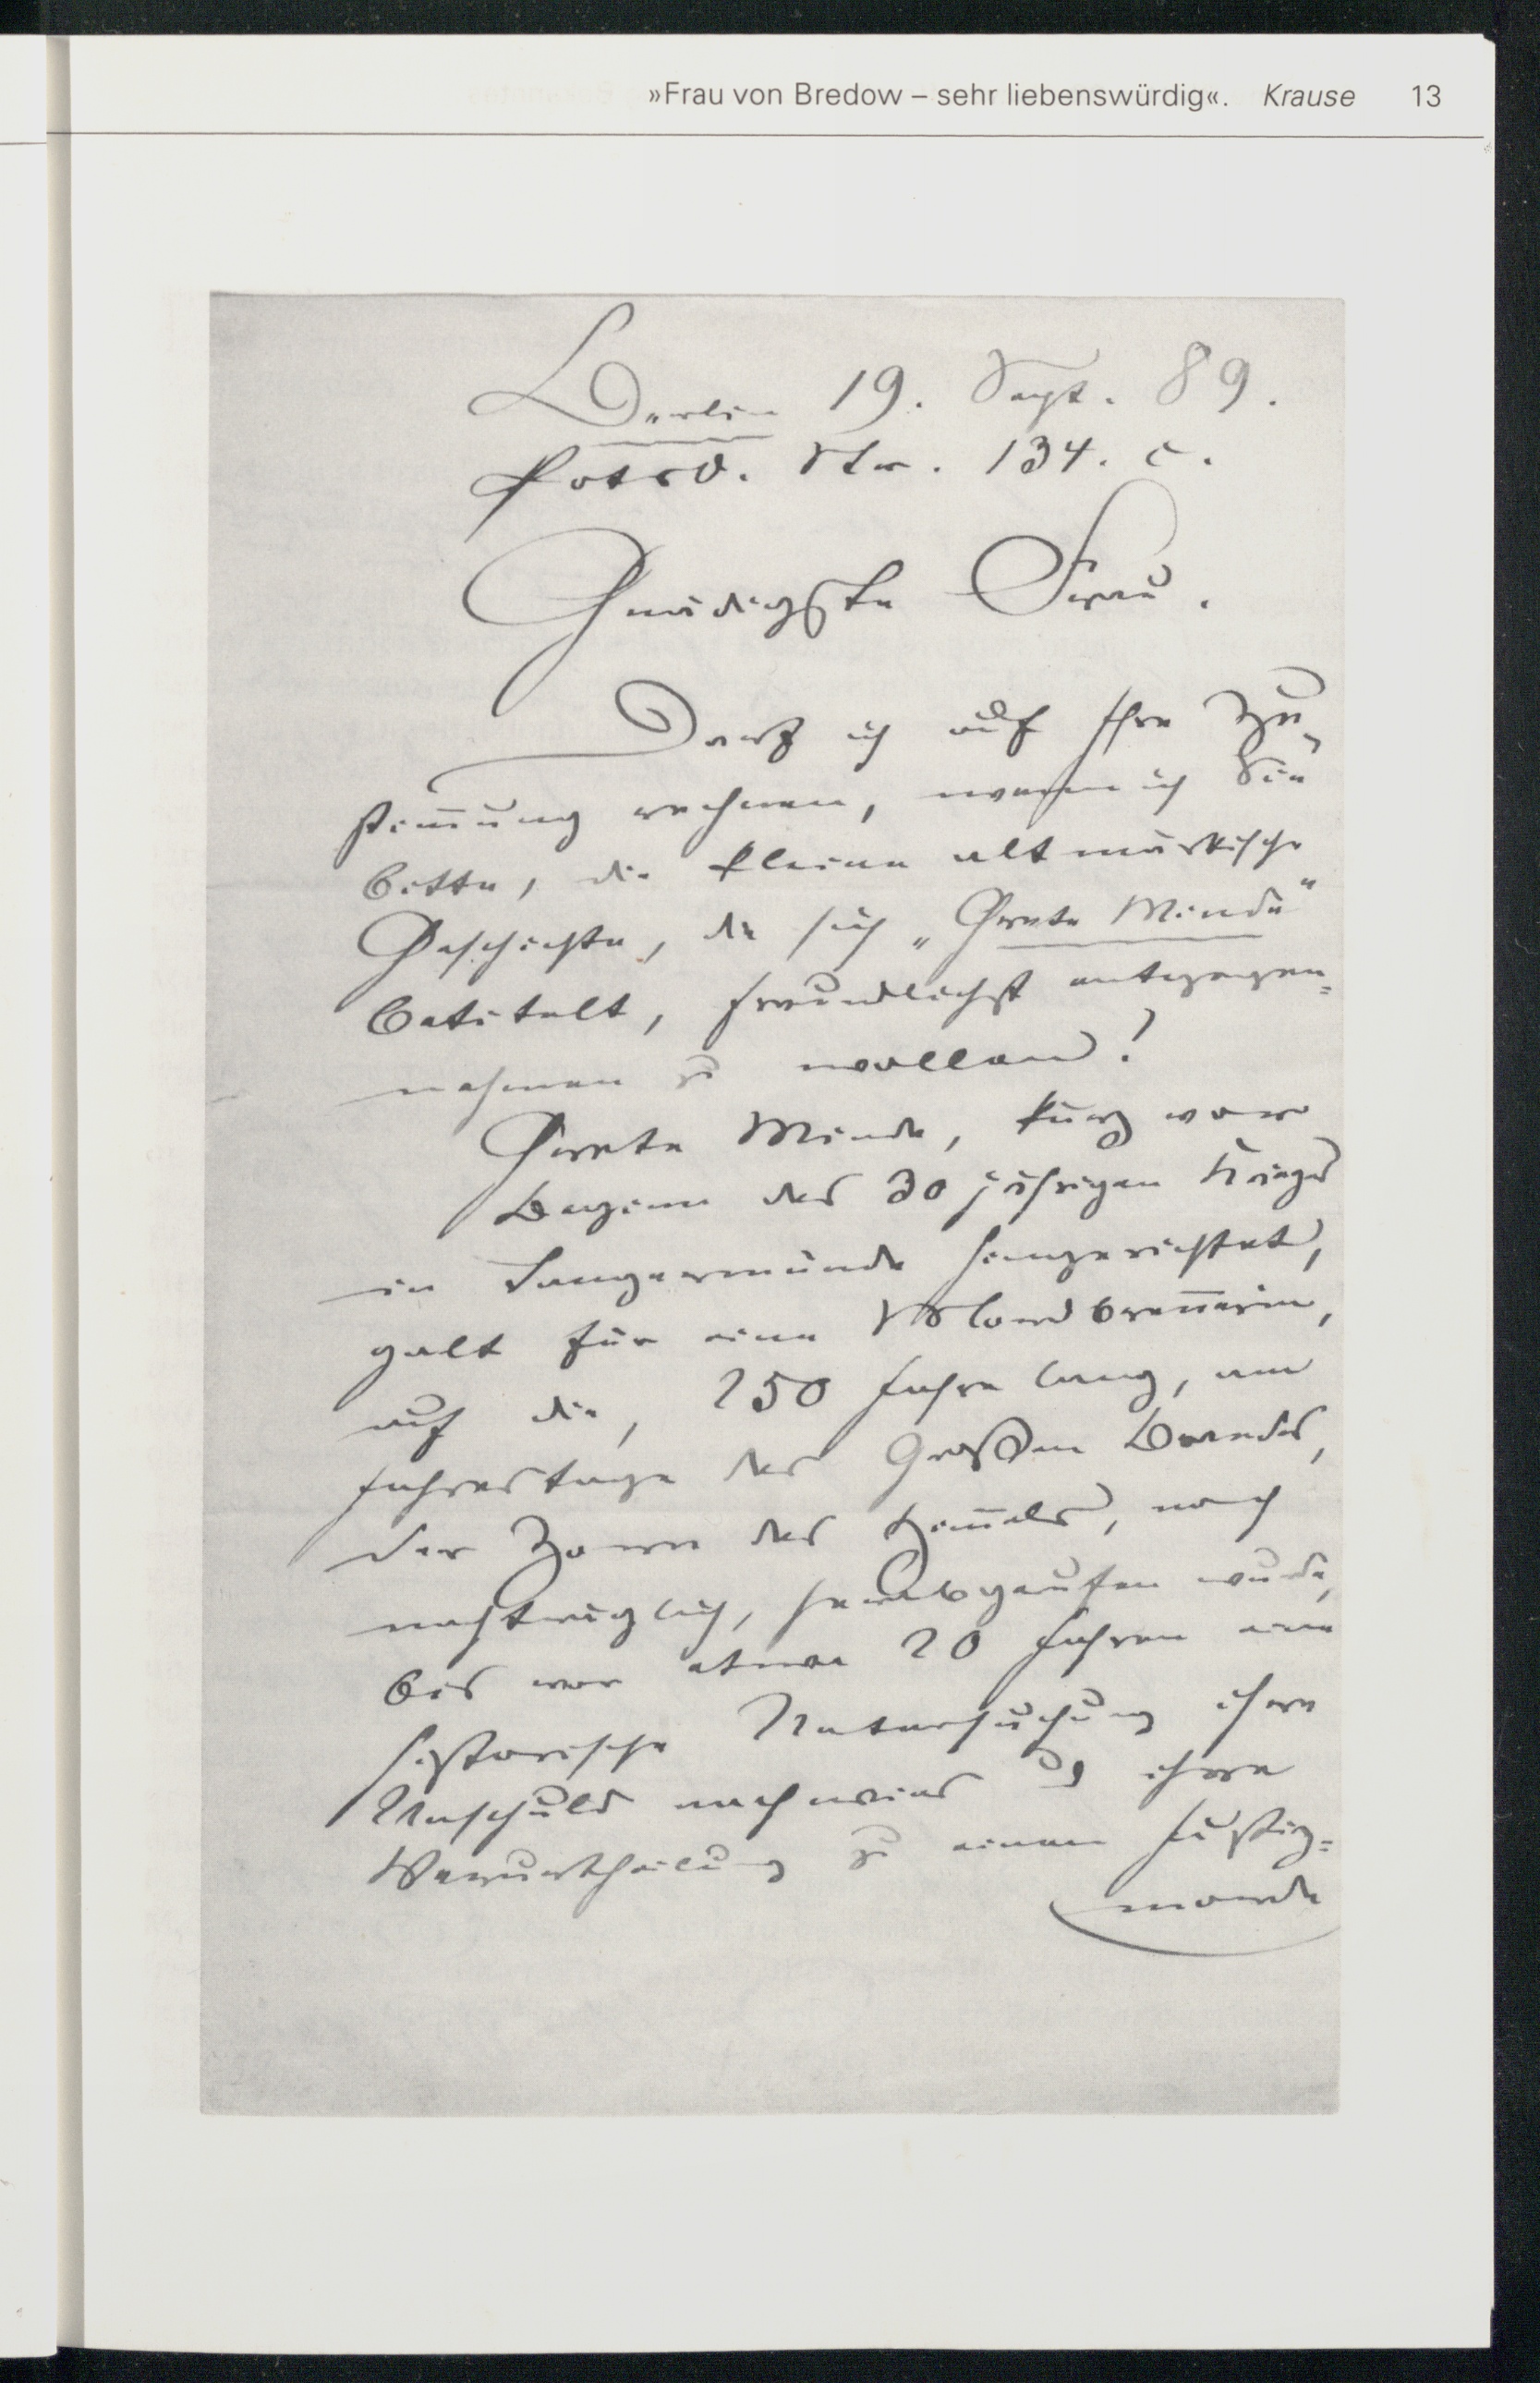 »Frau von Bredow – sehr liebenswürdig«. Krause 13
Berlin 19. Sept. 89.
Potsd. Str. 134. c.
Gnädigste Frau.
Darf ich auf Ihre Zu-
stim̄ung rechnen, wenn ich Sie
bitte, die kleine altmärkische
Geschichte, die sich „Grete Minde“
betitelt, freundlichst entgegen=
nehmen zu wollen!
Grete Minde, kurz vor
Beginn des 30 jährigen Krieges
in Tangermünde hingerichtet,
galt für eine Mordbren̄erin,
auf die, 250 Jahre lang, am
Jahrestage des Großen Brandes,
der Zorn des Him̄els, noch
nachträglich, herabgerufen wurde,
bis vor etwa 20 Jahren eine
historische Untersuchung ihre
Unschuld nachwies u. ihre
Verurtheilung zu einem Justiz=
morde